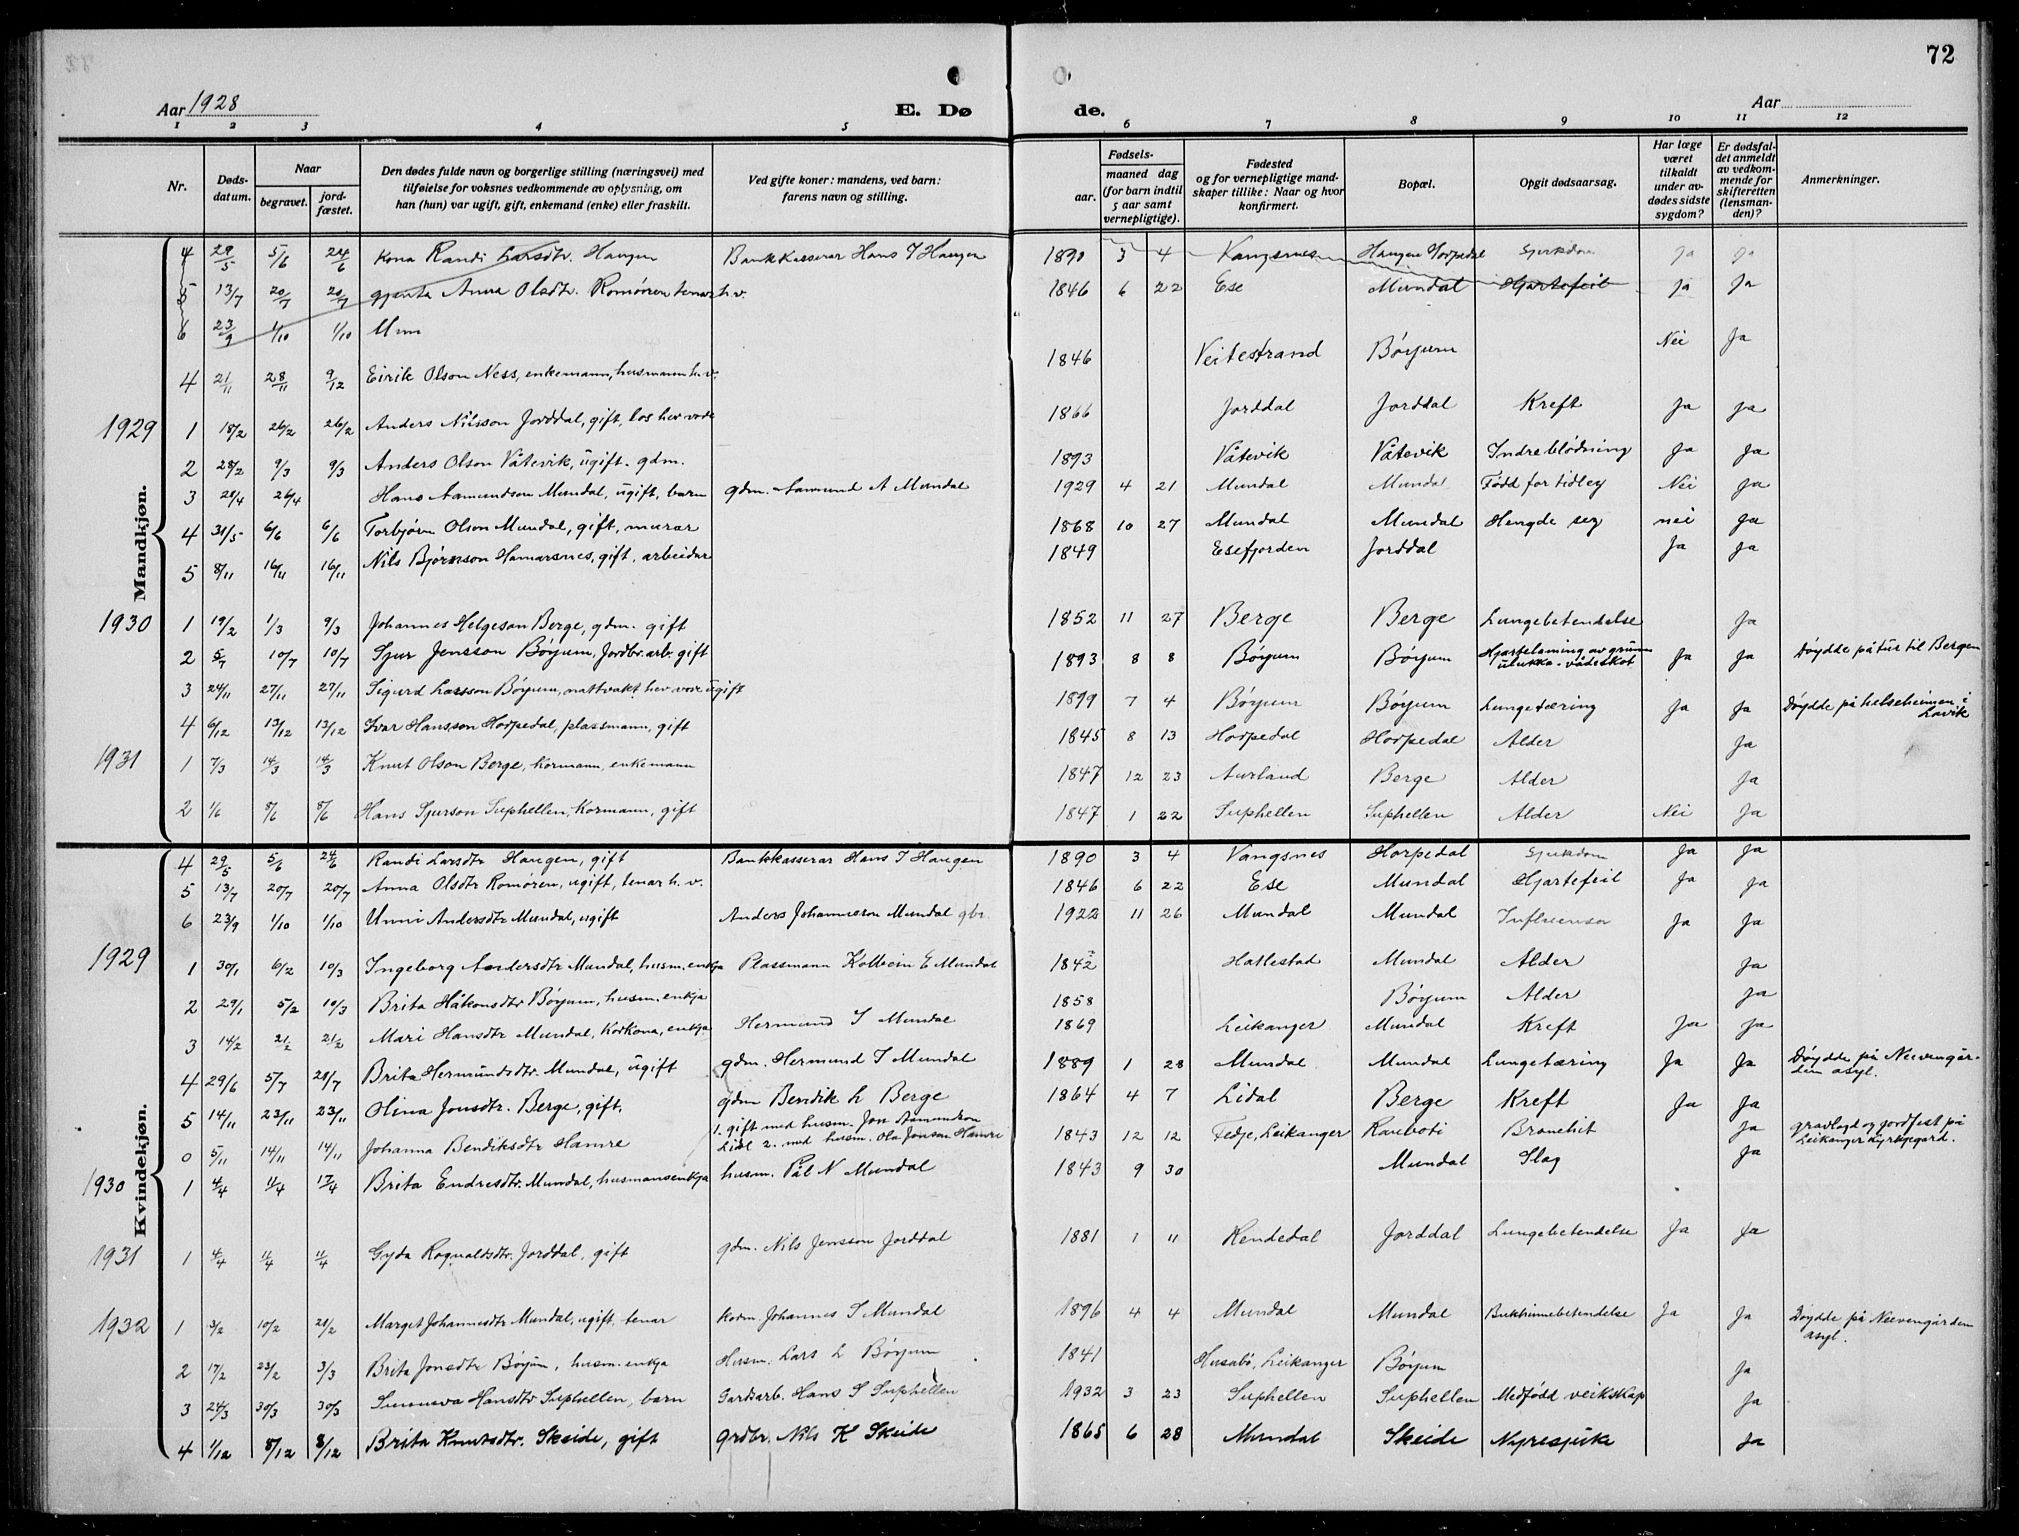 72
Aar 1928
E. Dø
de.
Aar
1 2 3 4 5 6 7 8 9 10 11 12
Nr.
Døds-datum.
Naar
begravet.
jord-fæstet.
Den dødes fulde navn og borgerlige stilling (næringsvei) med
tilføielse for voksnes vedkommende av oplysning, om
han (hun) var ugift, gift, enkemand (enke) eller fraskilt.
Ved gifte koner: mandens, ved barn:
farens navn og stilling.
Fødsels-
aar.
maaned dag
(for barn indtil
5 aar samt
vernepligtige).
Fødested
og for vernepligtige mand-
skaper tillike: Naar og hvor
konfirmert.
Bopæl.
Opgit dødsaarsag.
Har læge
været
tilkaldt
under av-
dødes sidste
sygdom?
Er dødsfal-
det anmeldt
av vedkom-
mende for
skifteretten
(lensman-
den)?
Anmerkninger.
Mandkjøn.
4 29/5 5/6 24/6 Kona Randi Larsdtr. Haugen Bankkasserar Hans J Haugen 1890 3 4 Vangsnes Haugen Horpedal Sjukdom ja ja
5 13/7 20/7 20/7 gjenta Anna Olsdtr. Romøren tenar h.v. 1846 6 22 Ese Mundal Hjartefeil ja ja
6 23/9 1/10 1/10 Unni
4 21/11 28/11 9/12 Eirik Olson Ness, enkemann, husmann h.v. 1846 Veitestrand Bøyum Nei Ja
1929 1 18/2 26/2 26/2 Anders Nilsson Jorddal, gift, los hev vore 1866 Jorddal Jorddal Kreft Ja Ja
2 28/2 9/3 9/3 Anders Olson Våtevik, ugift. gdm. 1893 Våtevik Våtevik Indreblødning Ja Ja
3 21/4 26/4 Hans Aamundson Mundal, ugift, barn gdm. Aamund A Mundal 1929 4 21 Mundal Mundal Fødd for tidleg Nei Ja
4 31/5 6/6 6/6 Torbjørn Olson Mundal, gift, murar 1868 10 27 Mundal Mundal Hengde seg nei Ja
5 8/11 16/11 16/11 Nils Bjørnson Hamarsnes, gift, arbeidar 1849 Esefjorden Jorddal Ja Ja
1930 1 19/2 1/3 9/3 Johannes Helgeson Berge, gdm. gift 1852 11 27 Berge Berge Lungebetendelse Ja
2 5/7 10/7 10/7 Sjur Jensson Bøyum, Jordbr.arb. gift 1893 8 8 Bøyum Bøyum Hjartelaming av grunn ulukke-vådeskot Ja Ja Døydde på tur til Bergen
3 24/11 27/11 27/11 Sigurd Larsson Bøyum, nattvakt hev vore ugift 1899 7 4 Bøyum Bøyum Lungetæring Ja Ja Døydde på helseheimen i Lavik
4 6/12 13/12 13/12 Ivar Hansson Horpedal, plassmann, gift 1845 8 13 Horpedal Horpedal Alder Ja
1931 1 7/3 14/3 14/3 Knut Olson Berge, kormann, enkemann 1847 12 23 Aurland Berge Alder Ja
2 1/6 8/6 8/6 Hans Sjurson Suphellen, Kormann, gift 1847 1 22 Suphellen Suphellen Alder Nei Ja
Kvindekjøn.
4 29/5 5/6 24/6 Randi Larsdtr Haugen, gift Bankkasserar Hans J Haugen 1890 3 4 Vangsnes Horpedal Sjukdom Ja Ja
5 13/7 20/7 20/7 Anna Olsdtr Romøren, ugift, tenar h. v. 1846 6 22 Ese Mundal Hjartefeil Ja Ja
6 23/9 1/10 1/10 Unni Andersdtr Mundal, ugift Anders Johannesson Mundal gbr. 1922 11 26 Mundal Mundal Influensa Ja Ja
1929 1 30/1 6/2 10/3 Ingeborg Andersdtr Mundal, husm. enkja Plassmann Kolbein E Mundal 1842 Hallestad Mundal Alder Ja
2 29/1 5/2 10/3 Brita Håkonsdtr Bøyum, husm. enkja 1858 Bøyum Alder Ja
3 14/2 21/2 21/2 Mari Hansdtr Mundal, korkona, enkja Hermund S Mundal 1869 Leikanger Mundal Kreft Ja Ja
4 29/6 5/7 28/7 Brita Hermundsdtr Mundal, ugift gdm. Hermund S Mundal 1889 1 28 Mundal Mundal Lungetæring Ja Ja Døydde på Neevengår-den asyl.
5 14/11 23/11 23/11 Olina Jonsdtr. Berge, gift. gdm Bendik L Berge 1864 4 7 Lidal Berge Kreft Ja Ja
0 5/11 14/11 14/11 Johanna Bendiksdtr Hamre 1. gift med husm. Jon Aamundson Lidl 2. med husm. Ola Jonson Hamre 1843 12 12 Fedje, Leikanger Ja gravlagd og jordfest på Leikanger kyrkjegard.
1930 1 4/4 11/4 17/4 Brita Endresdtr. Mundal, husmansenkja husm. Pål N Mundal 1843 9 30 Mundal Slag Ja
1931 1 4/4 11/4 11/4 Gyda Rognaldsdtr. Jorddal, gift gdm. Nils Jensson Jorddal 1881 1 11 Hendedal Jorddal Lungebetendelse Ja Ja
1932 1 3/2 10/2 28/2 Marget Johannesdtr Mundal, ugift, tenar korm. Johannes S Mundal 1896 4 4 Mundal Mundal Bukhinnebetendelse Ja Ja Døydde på Neevengården asyl.
2 17/2 23/2 3/3 Brita Jonsdtr Bøyum, husm. enkja Husm. Lars L Bøyum 1841 Husabø, Leikanger Bøyum Ja
3 24/3 30/3 30/3 Sunneva Hansdtr Suphellen, barn Gardsarb. Hans S Suphellen 1932 3 23 Suphellen Suphellen Medfødd veikskap Ja
4 1/12 8/12 8/12 Brita Knutsdtr. Skeide, gift grdbr. Nils K Skeide 1865 6 28 Mundal Skeide Nyresjuke Ja